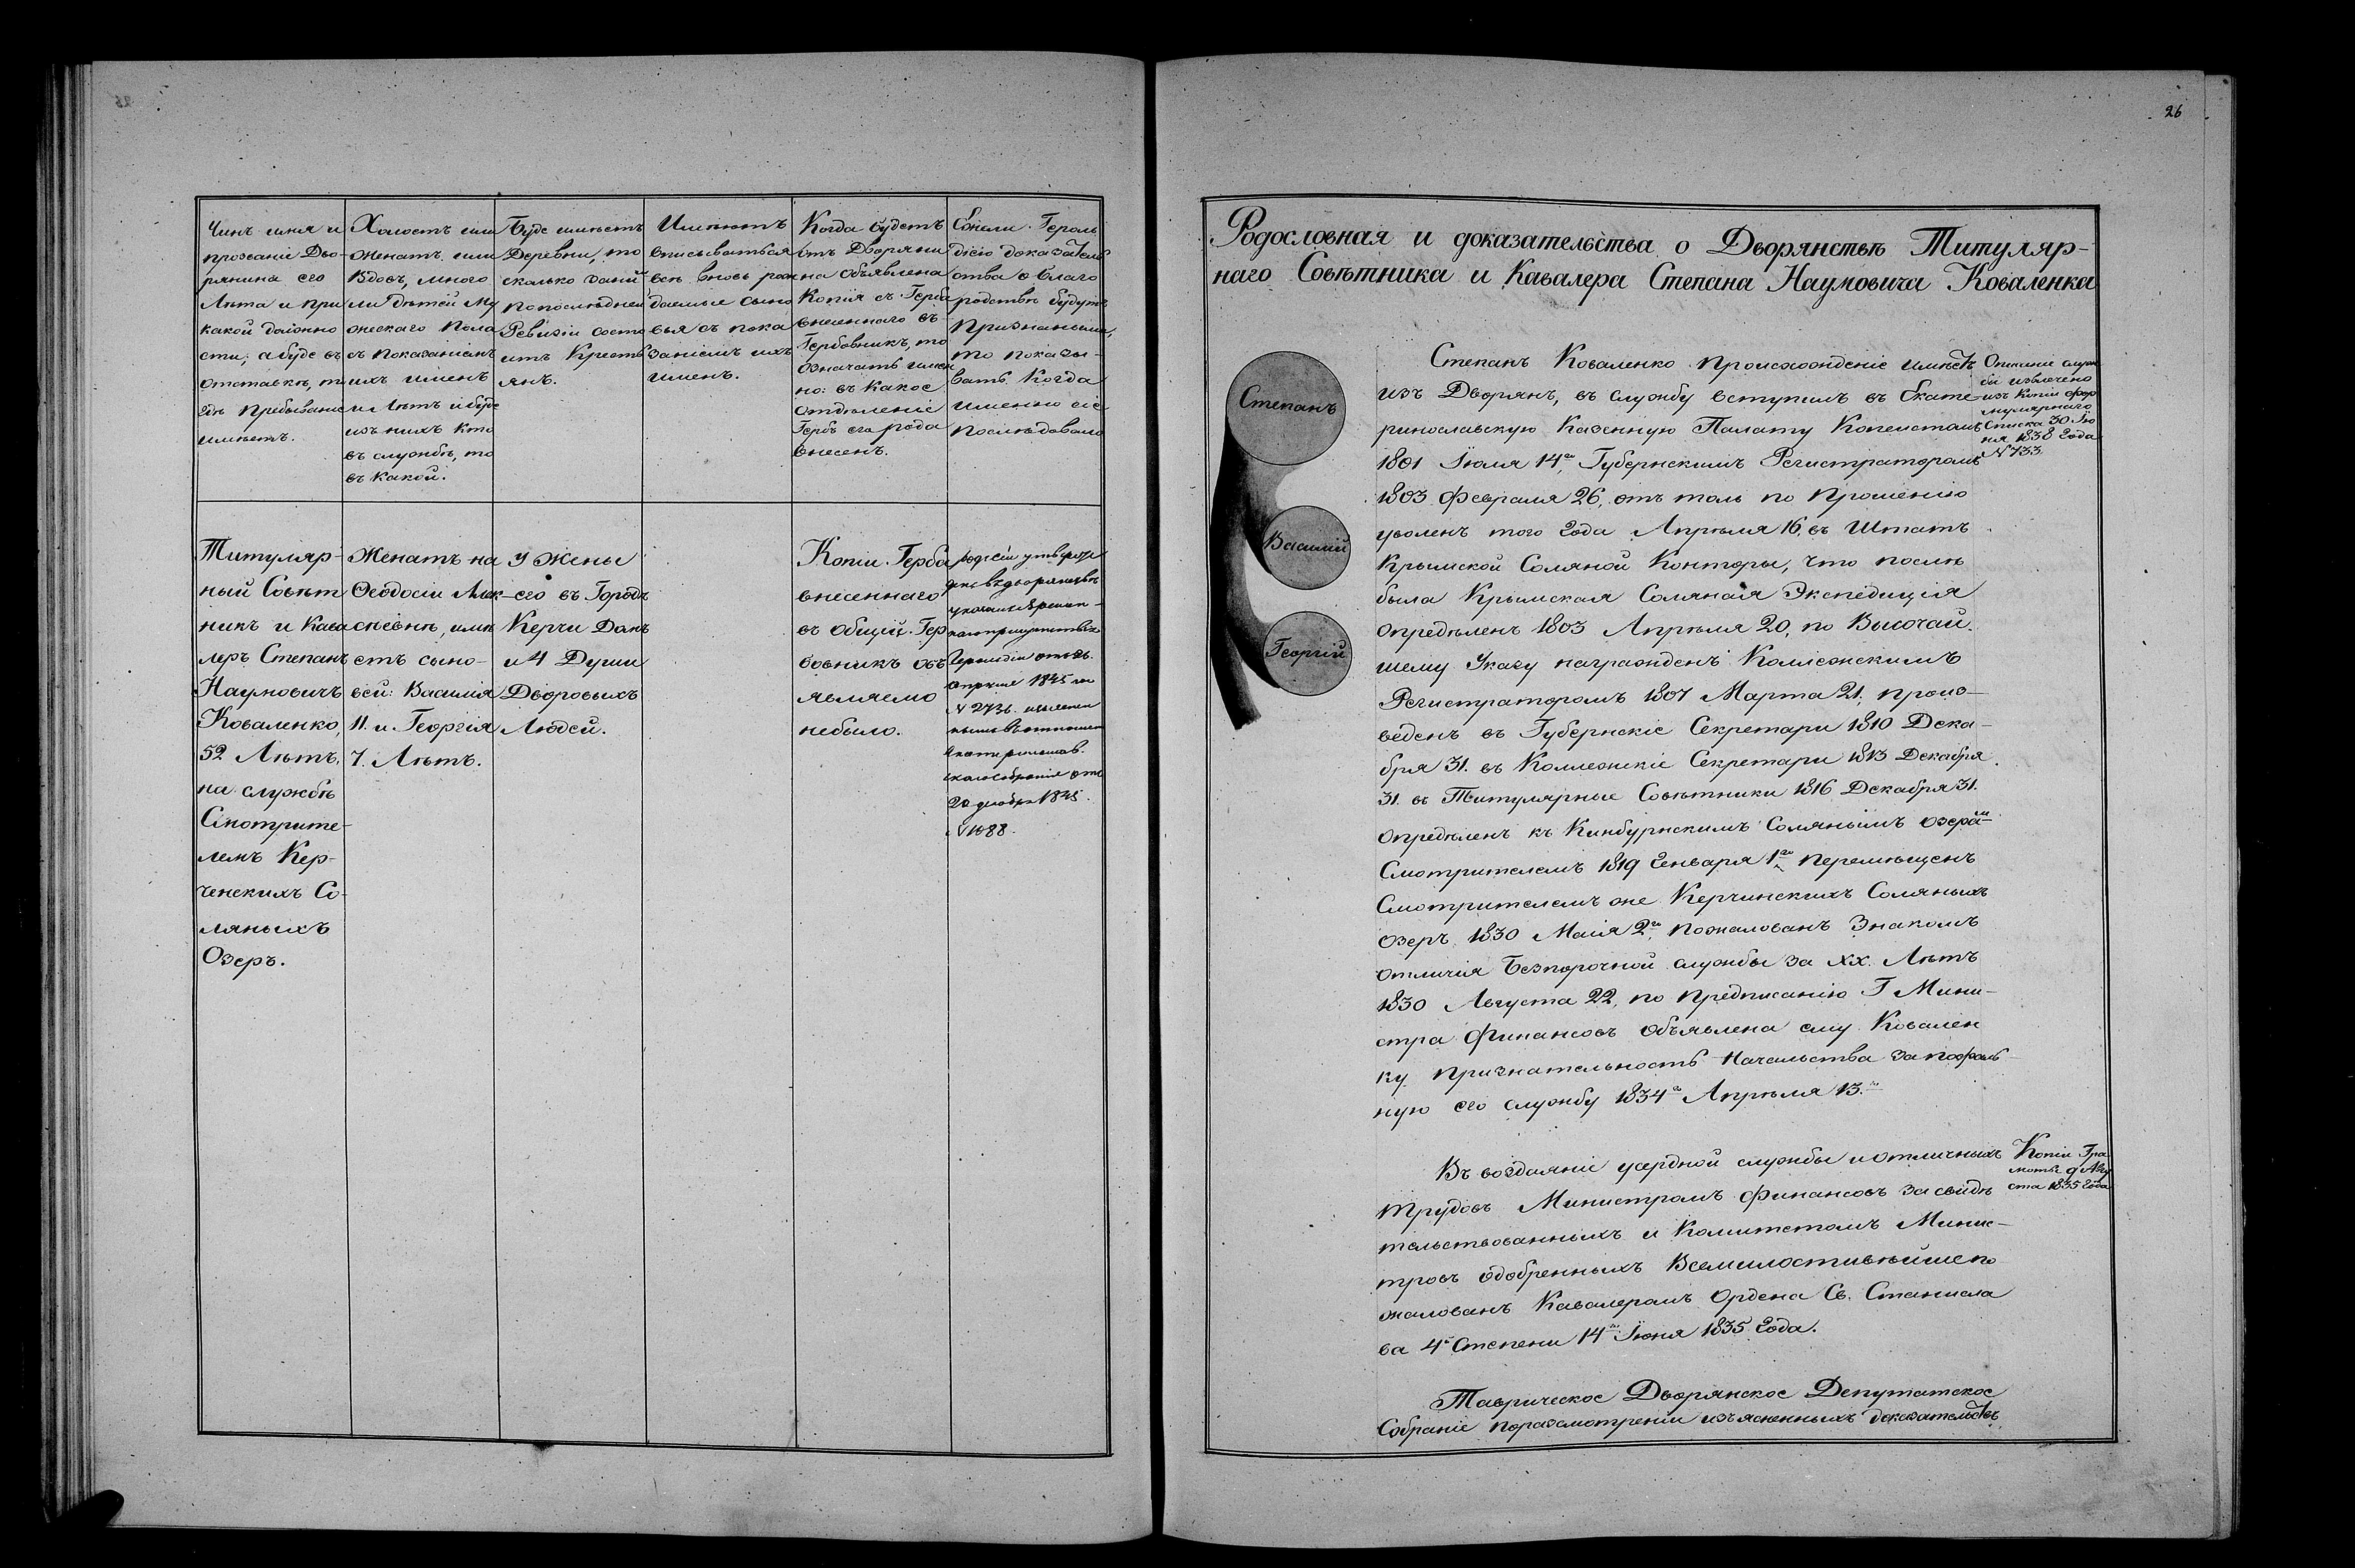 Чинъ имя и
прозваніе Дво-
рянина его
Лѣта и при
какой должно
сти; а буде въ
отставкѣ, то
гдѣ пребываніе
имѣетъ.
Холостъ или
женатъ или
Вдовъ, много
ли дѣтей Му
жескаго пола
съ показаніемъ
ихъ именъ
и Лѣтъ и буде
изъ нихъ кто
въ службѣ, то
въ какой.
Буде имѣетъ
Деревни, то
сколько душъ
по послѣдней
Ревизіи состо
итъ Крестъ
янъ.
Имѣютъ
вписываться
всѣ вновь рож
даемые сыно
вья съ пока
заніемъ ихъ
именъ.
Когда будетъ
отъ Дворяни
на объявлена
Копія съ Герба
внесеннаго въ
Гербовникъ, то
означать имен
но: въ какое
отдѣленіе
Гербъ его рода
внесенъ.
Ежели Героль
діею доказатель
ства о благо
родствѣ будутъ
признанными,
то показы-
вать когда
именно сіе
послѣдовало
Титуляр-
ный Совѣт
никъ и Кава
леръ Степанъ
Наумовичъ
Коваленко,
52 Лѣтъ,
на службѣ
Смотрите-
лемъ Кер-
ченскихъ Со-
ляныхъ
Озеръ.
Женатъ на
Ѳеодосіи Алек-
сѣевнѣ, имѣ
етъ сыно-
вей: Василія
11. и Георгія
7. Лѣтъ.
У жены
его въ Городѣ
Керчи Домъ
и 4 Души
Дворовыхъ
Людей.
Копіи Герба
внесеннаго
въ общій Гер
бовникъ объ
являемо
небыло.
родъ сей утверж
денъ въ дворянствѣ
указомъ Времен-
наго присутствія
Герольдіи отъ 26.
апрѣля 1845 за
№ 2736. изъяснен
нымъ въ отношеніи
Екатеринослав.
скаго собранія отъ
20 декабря 1845.
№ 1088.
26
Родословная и доказательства о Дворянствѣ Титуляр-
наго Совѣтника и Кавалера Степана Наумовича Коваленка
Степанъ
Василій
Георгій
Степанъ Коваленко происхожденіе имѣетъ
изъ Дворянъ, въ службу вступилъ въ Екате-
ринославскую Казенную Палату Копеистомъ
1801 Іюля 14го, Губернскимъ Регистраторомъ
1803 Февраля 26, отъ толь по прошенію
уволенъ того года Апрѣля 16, въ Штатъ
Крымской Соляной Конторы, что послѣ
была Крымская Соляная Экспедиція
опредѣленъ 1803 Апрѣля 20, по Высочай-
шему Указу награжденъ Коллежскимъ
Регистраторомъ 1807 Марта 21, произ-
веденъ въ Губернскіе Секретари 1810 Дека-
бря 31. въ Коллежскіе Секретари 1813 Декабря
31. въ Титулярные Совѣтники 1816 Декабря 31.
опредѣленъ къ Кинбурнскимъ Солянымъ озерамъ
Смотрителемъ 1819 Генваря 1го, перемѣщенъ
Смотрителемъ же Керчинскихъ Соляныхъ
озеръ 1830 Маія 2го, пожалованъ Знакомъ
отличія Безпорочной службы за XX. Лѣтъ
1830 Августа 22, по предписанію Г Мини-
стра Финансовъ объявлена ему Ковален
ку признательность Начальства за похваль
ную его службу 1834го Апрѣля 13го
Описаніе служ
бы извлечено
изъ Копіи фор
мулярнаго
Списка 30 Ію
ня 1838 года
№ 733.
Въ воздаяніе усердной службы и отличныхъ
трудовъ Министромъ Финансовъ засвидѣ
тельствованныхъ и Комитетомъ Минис-
тровъ одобренныхъ Всемилостивѣйше по
жалованъ Кавалеромъ Ордена Св. Станисла
ва 4й Степени 14го Іюня 1835 года.
Копіи Гра
моты 9 Авгу
ста 1835 года
Таврическое Дворянское Депутатское
Собраніе по разсмотреніи изъясненныхъ доказательствъ